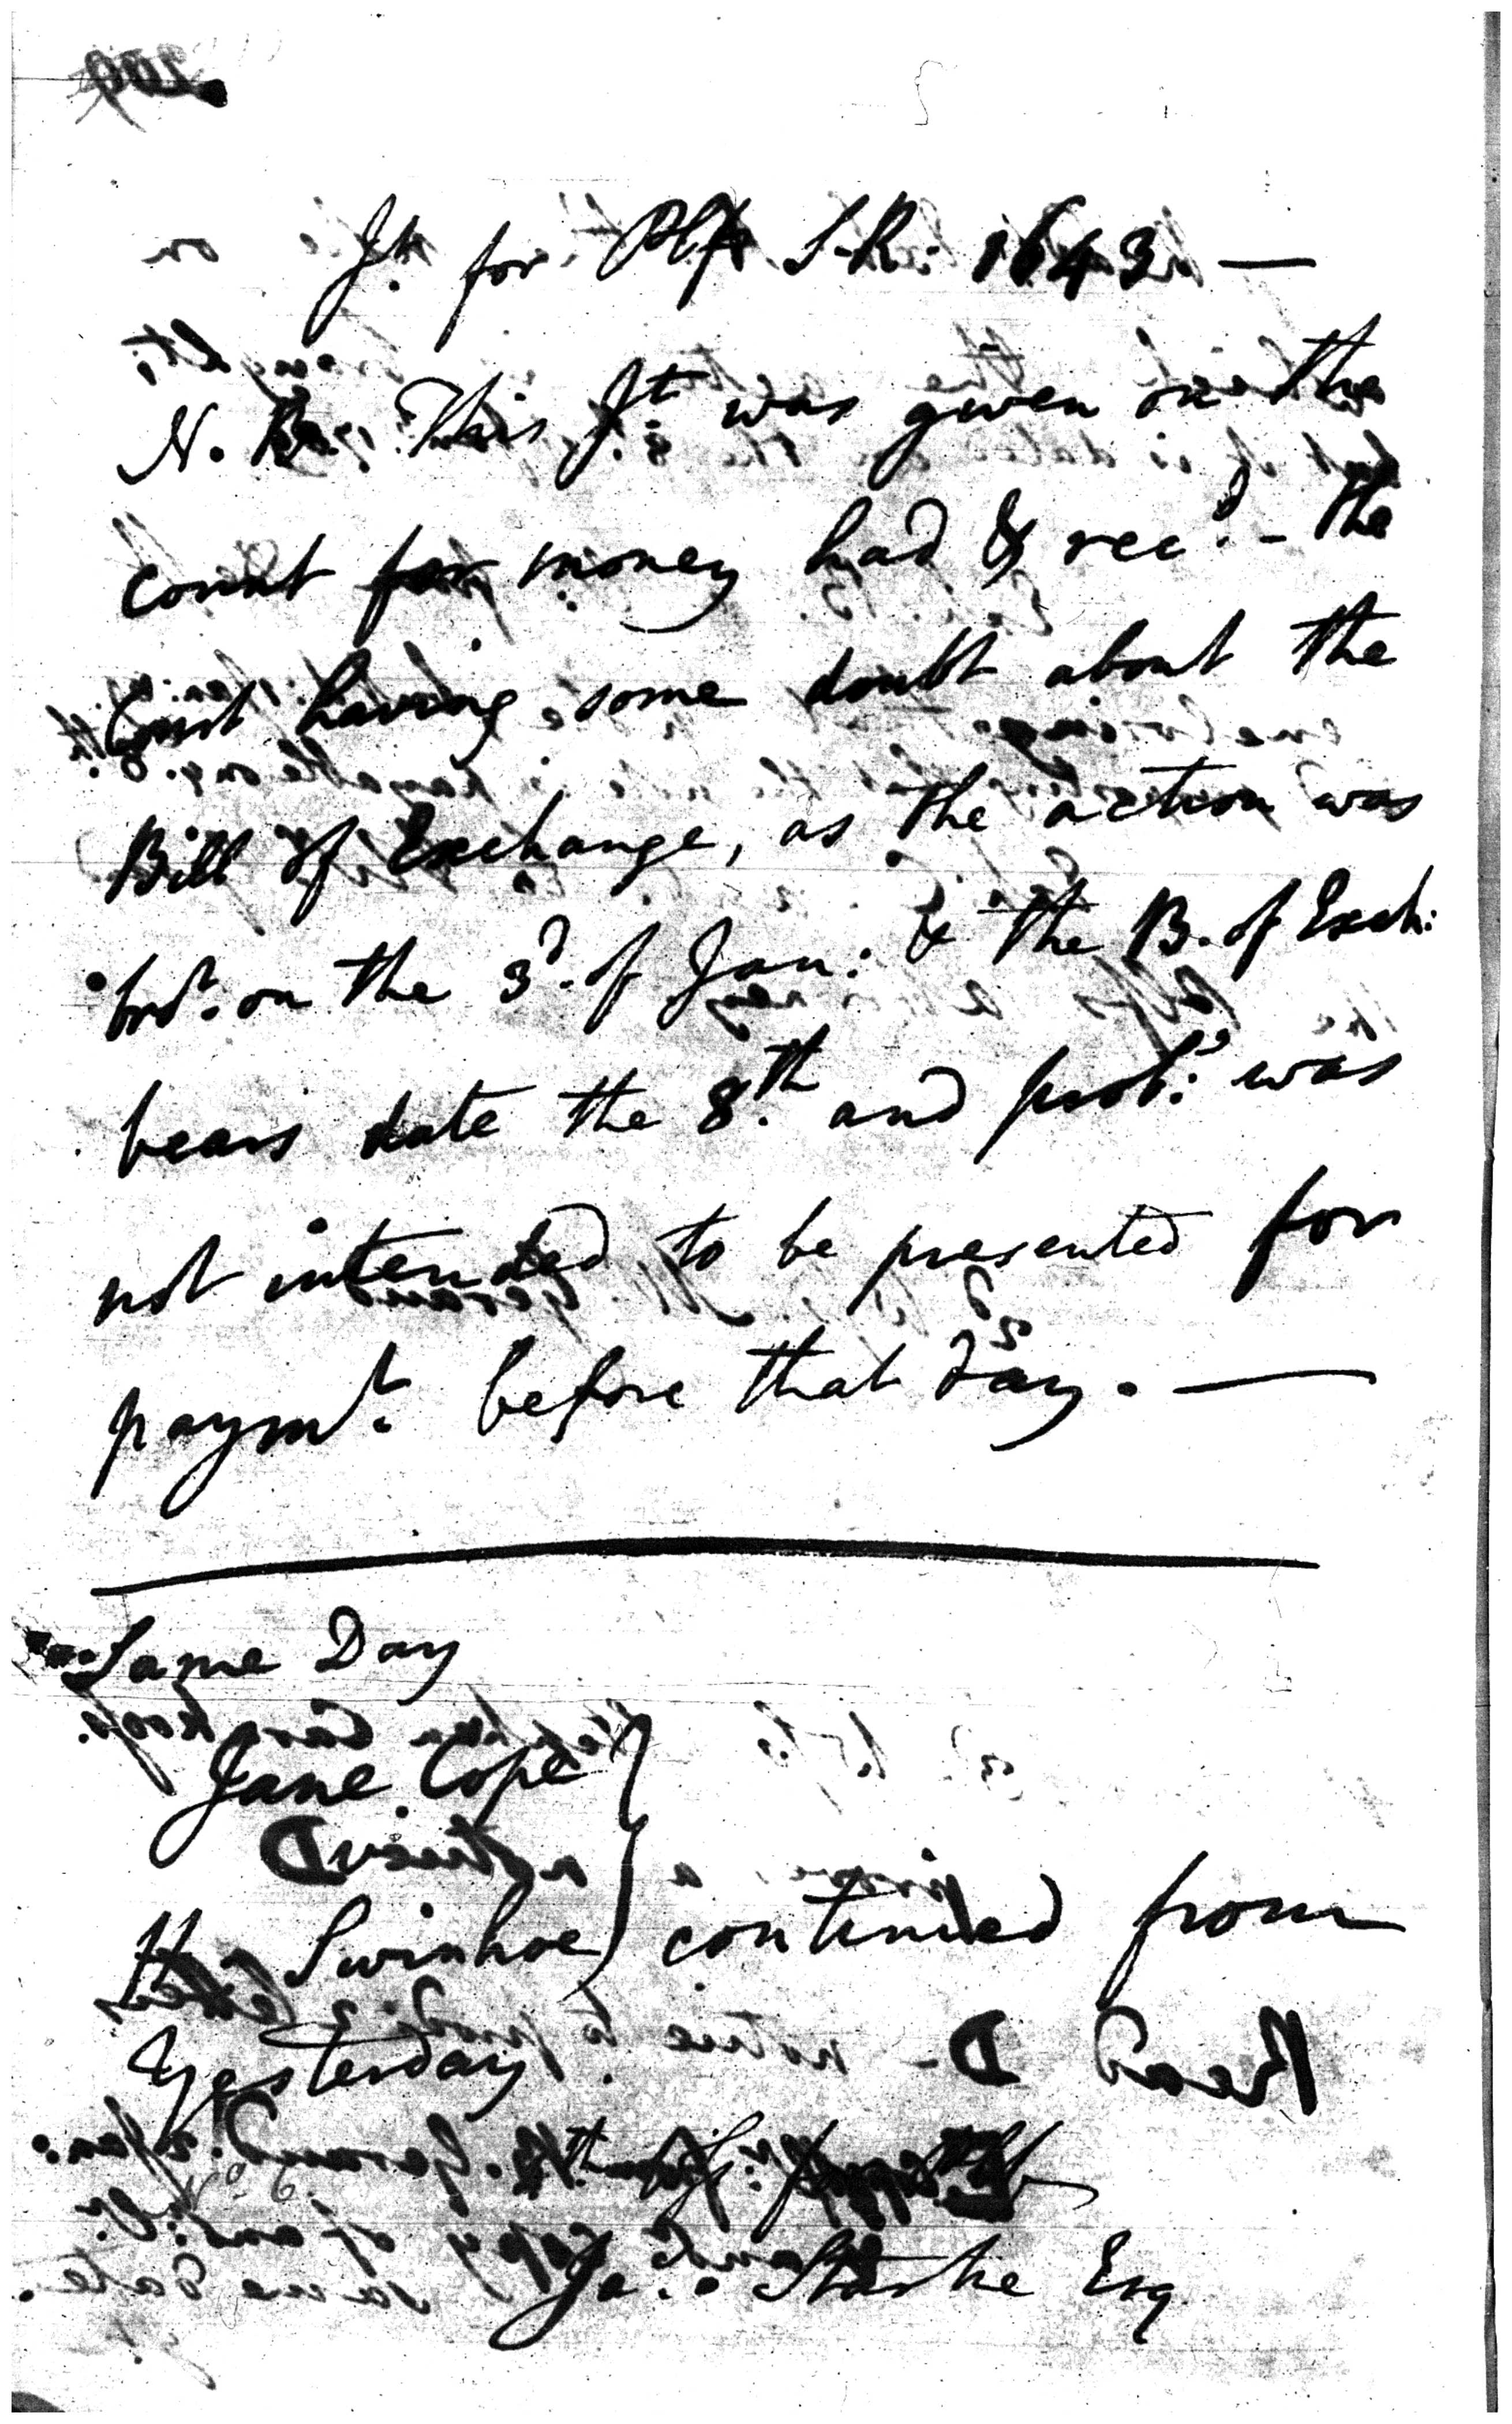 Jt. for Plff S.R: 1643 —
N. B. This Jt. was given on the
count for money had & recd. - the
Court having some doubt about the
Bill of Exchange, as the action was
brot. on the 3d. of Jan: & the B. of Exch:
bears date the 8.th and prob:y was
not intended to be presented for
paymt. before that day. —
Same Day
Jane Cope
Swinhoe } continued from
Yesterday
Ja.s Stark Esq